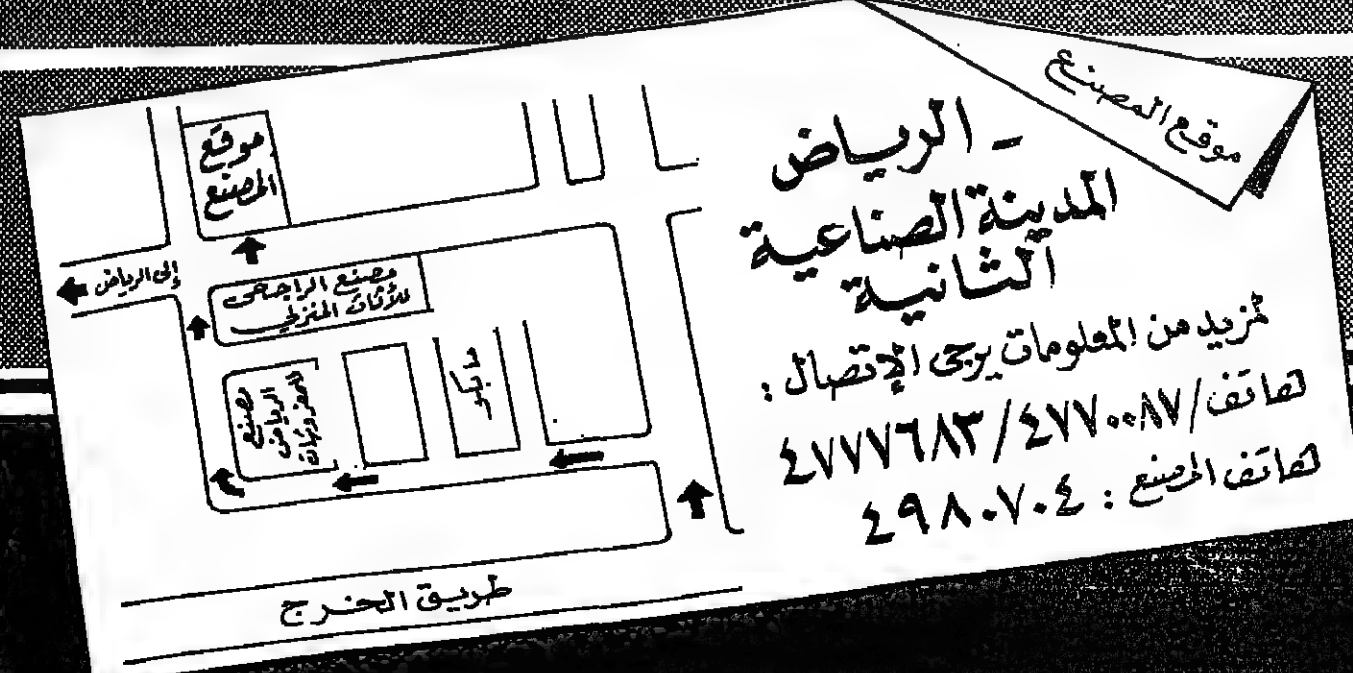 موقع المصنع
- الرياض
المدينة الصناعية
الثانية
لمزيد من المعلومات يرجى الإتصال :
هاتف/٤٧٧٠٠٨٧/٤٧٧٧٦٨٣
هاتف المصنع : ٤٩٨٠٧٠٤
موقع
المصنع
إلى الرياض
مصنع الراجحى
للأثاث المنزلي
مصنع
الرياض
للمفروشات
مابكو
طريق الخرج